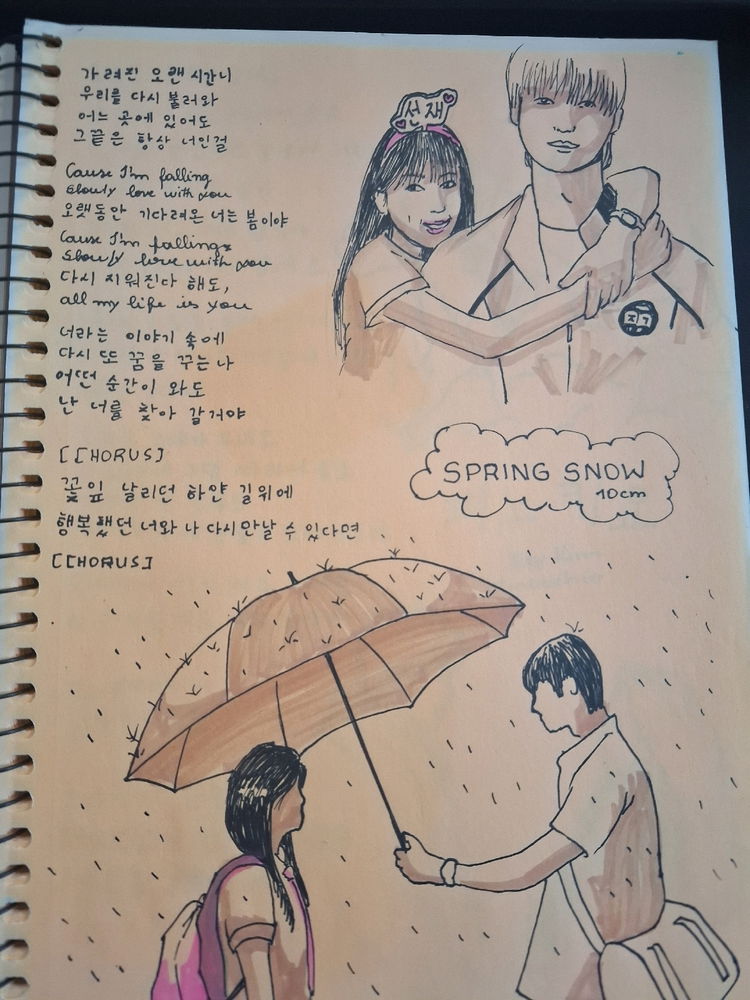 가려진 오랜 시간니
우리를 다시 불러와
어느 곳에 있어도
그끝은 항상 너인걸
Cause I'm falling
Slowly love with you
오랫동안 기다려온 너는 봄이야
Cause I'm falling
Slowly love with you
다시 지워진다 해도,
all my life is you
너라는 이야기 속에
다시 또 꿈을 꾸는 나
어떤 순간이 와도
난 너를 찾아 갈거야
[CHORUS]
꽃잎 날리던 하얀 길위에
행복했던 너와 나 다시만날 수 있다면
[CHORUS]
선재
SPRING SNOW
10cm